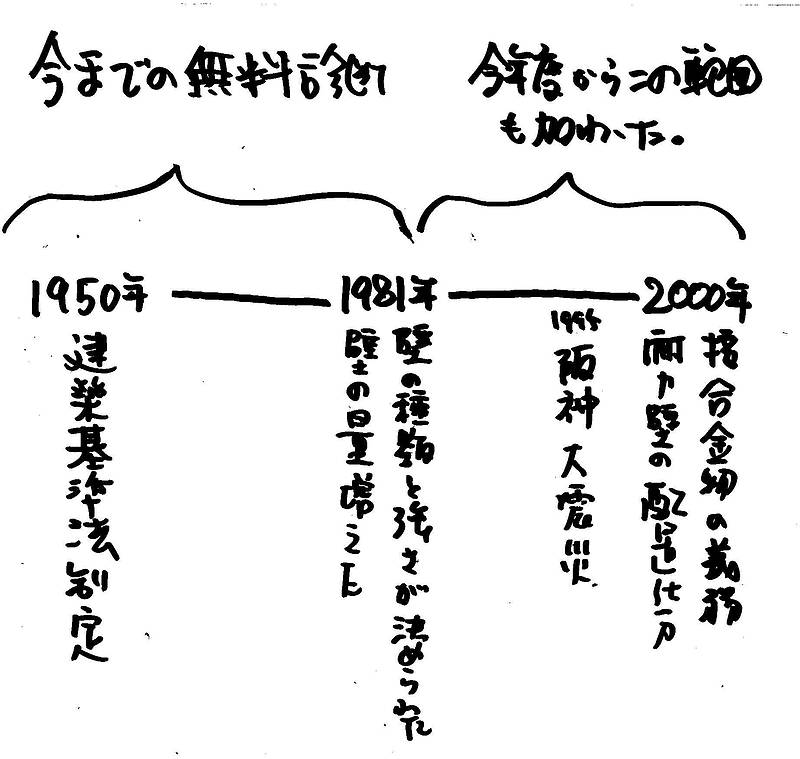 今までの無料診断
今年度からこの範囲
も加わった。
1950年
1981年
2000年
建築基準法制定
壁の種類と強さが決められた
壁の量増えた
1995
阪神大震災
接合金物の義務
耐力壁の配置仕方